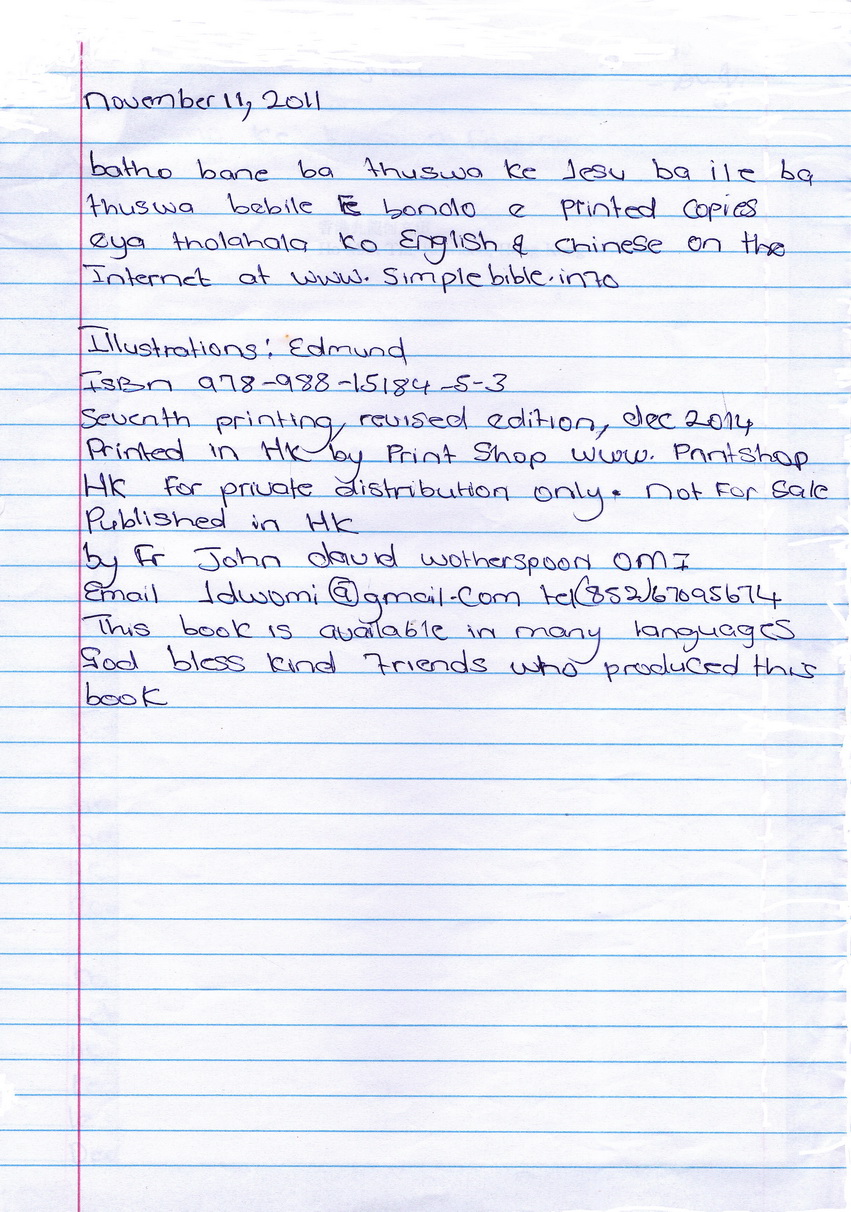 November 11, 2011
batho bane ba thuswa ke Jesu ba ile ba
thuswa bebile E bonolo e printed copies
eya tholahala ko English & chinese on the
Internet at www.simplebible.info
Illustrations: Edmund
ISBN 978-988-15184-5-3
Seventh printing, revised edition, dec 2014
Printed in HK by Print Shop www.Printshop
HK for private distribution only. Not For Sale
Published in HK
by Fr John david wotherspoon OMI
Email Jdwomi@gmail.com tel(852)67095674
This book is available in many languages
God bless kind friends who produced this
book